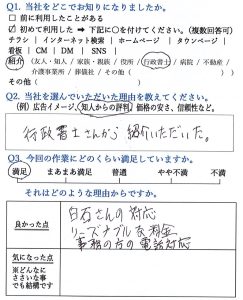 Q1. 当社をどこでお知りになりましたか。
□ 前に利用したことがある
☑ 初めて利用した → 下記に○を付けてください。(複数回答可)
チラシ | インターネット検索 | ホームページ | タウンページ
看板 | CM | DM | SNS |
紹介 (友人・知人/家族・親族/役所/行政書士/病院/不動産/
介護事業所/葬儀社/その他)
その他 ( )
Q2. 当社を選んでいただいた理由を教えてください。
(例) 広告イメージ、知人からの評判、価格の安さ、信頼性など。
行政書士さんから紹介いただいた。
Q3. 今回の作業にどのくらい満足していますか。
満足 まあまあ満足 普通 やや不満 不満
それはどのような理由からですか。
良かった点
白石さんの対応
リーズナブルな料金
事務の方の電話対応
気になった点
※どんなに
ささいな事
でも結構です